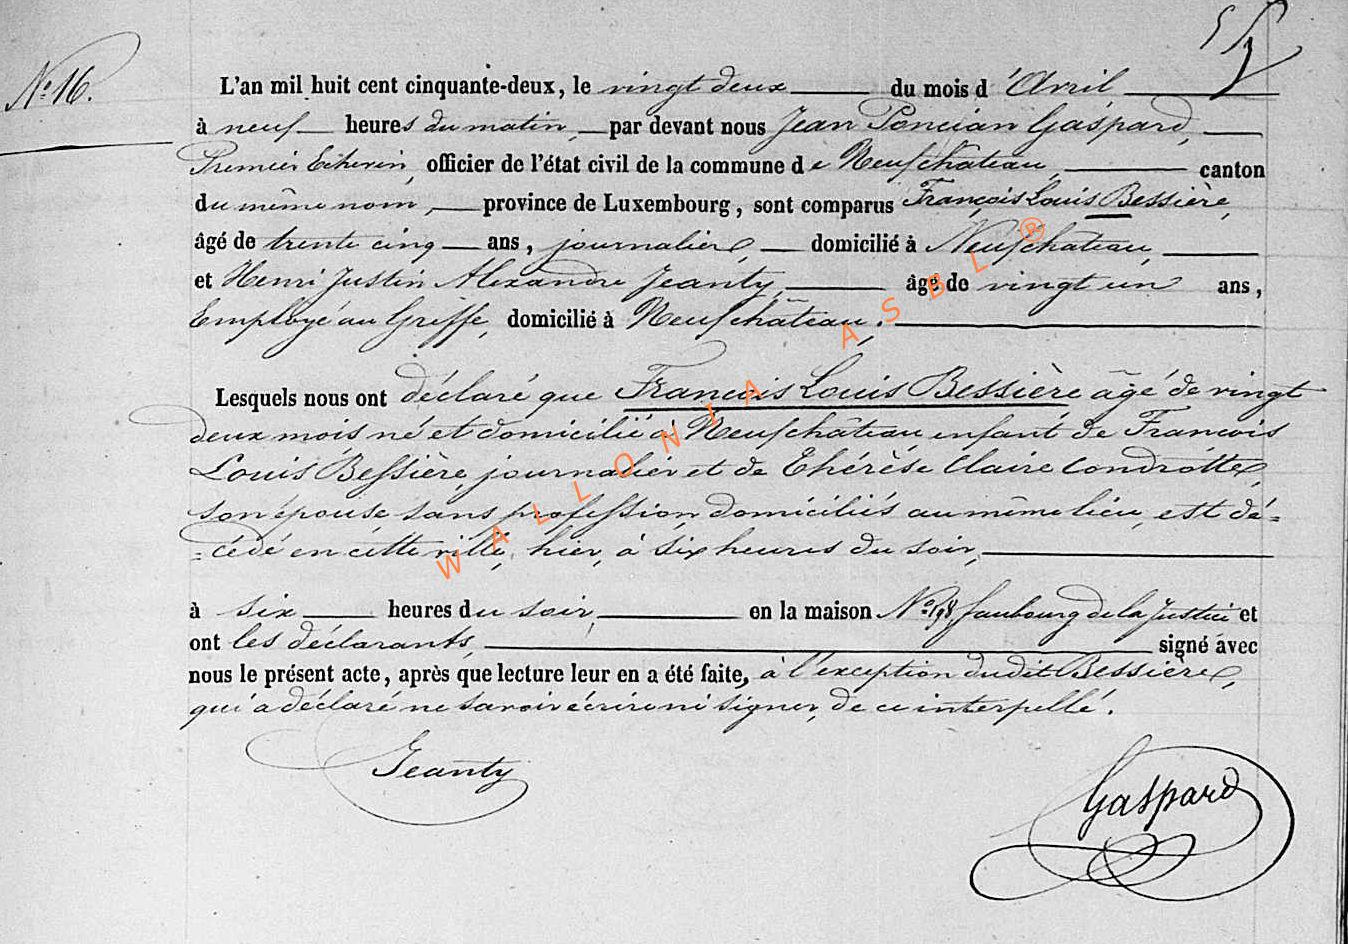 N° 16.
L'an mil huit cent cinquante-deux, le vingt deux du mois d'Avril
à neuf heures du matin, par devant nous Jean Poncian Gaspard,
Premier Echevin, officier de l'état civil de la commune de Neufchâteau, canton
du même nom, province de Luxembourg, sont comparus François Louis Bessière,
âgé de trente cinq ans, journalier, domicilié à Neufchâteau,
et Henri Justin Alexandre Jeanty, âgé de vingt un ans,
Employé au Greffe, domicilié à Neufchâteau.
Lesquels nous ont déclaré que François Louis Bessière âgé de vingt
deux mois né et domicilié à Neufchâteau enfant de François
Louis Bessière, journalier et de Thérèse Claire Condrotte,
son épouse, sans profession, domiciliés au même lieu, est dé=
=cédé en cette ville, hier, à six heures du soir,
à six heures du soir, en la maison N° faubourg de la Justice et
ont les déclarants, signé avec
nous le présent acte, après que lecture leur en a été faite, à l'exception dudit Bessière,
qui a déclaré ne savoir écrire ni signer, de ce interpellé.
Jeanty
Gaspard
WALLONIA ASBL ®